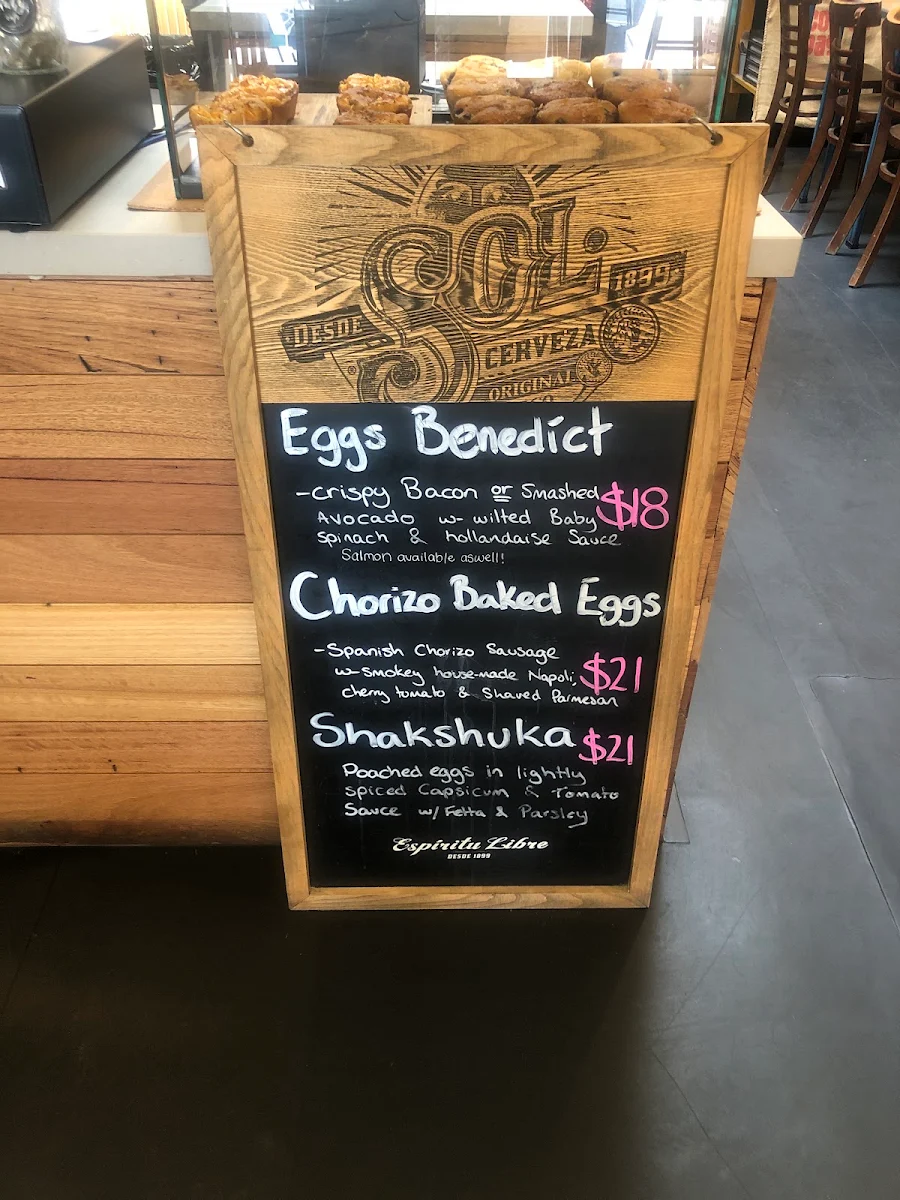 SOL
DESDE
1899
CERVEZA
ORIGINAL
Eggs Benedict
-crispy Bacon or Smashed $18
Avocado w- wilted Baby
spinach & hollandaise Sauce
Salmon available aswell!
Chorizo Baked Eggs
-Spanish Chorizo Sausage
w-smokey house-made Napoli, $21
cherry tomato & Shaved Parmesan
Shakshuka $21
Poached eggs in lightly
spiced Capsicum & Tomato
Sauce w/ Fetta & Parsley
Espíritu Libre
DESDE 1899